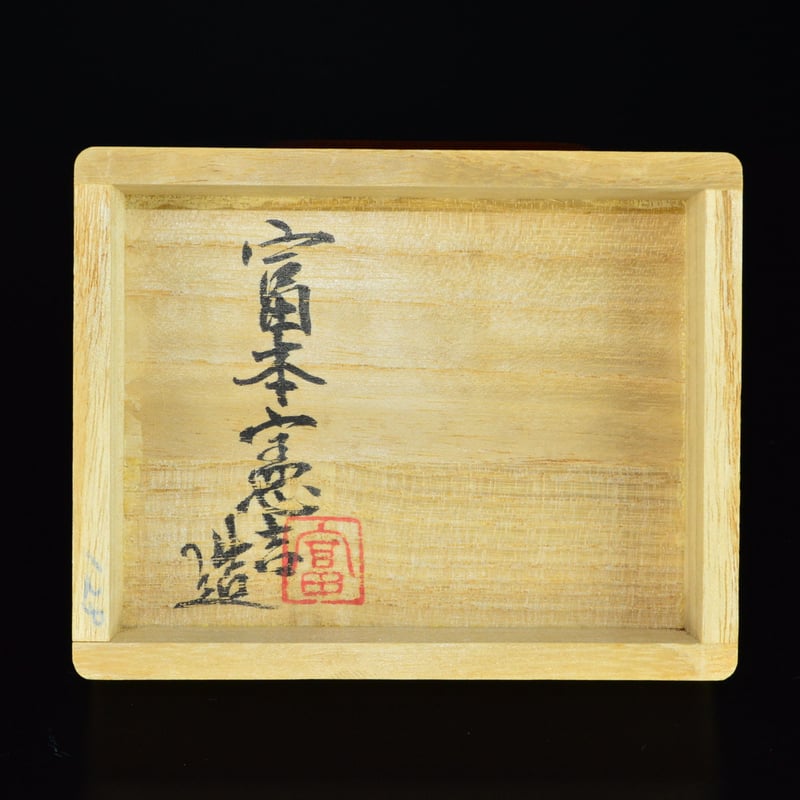 富本憲吉
造
富